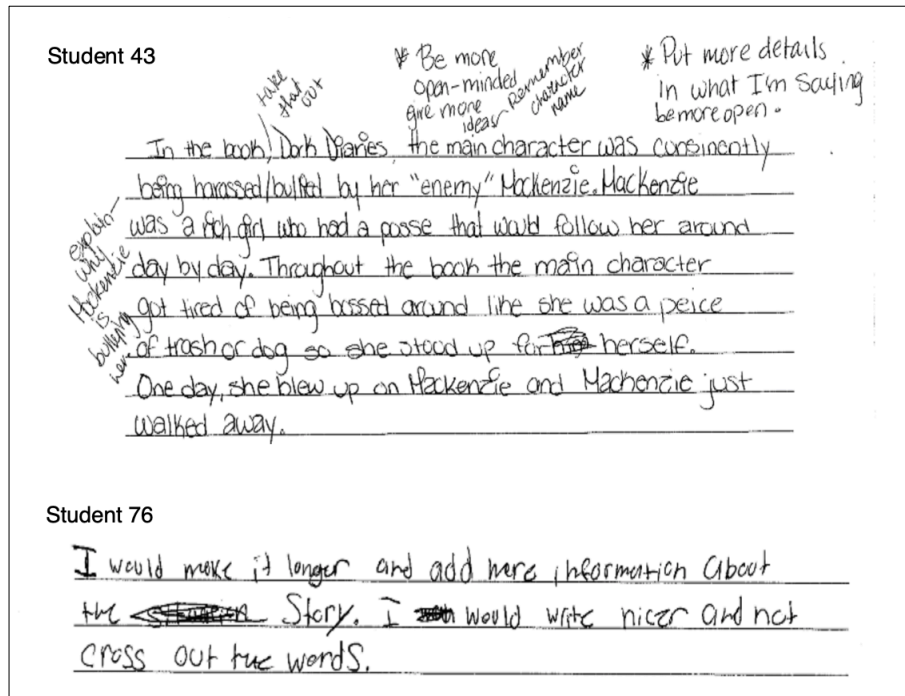 Student 43
take that out
* Be more
open-minded
give more
ideas
Remember
character
name
* Put more details
in what I'm saying
be more open.
In the book, Dork Diaries, the main character was consinently
being harassed/bullied by her "enemy" Mackenzie. Mackenzie
was a rich girl who had a posse that would follow her around
day by day. Throughout the book the main character
got tired of being bossed around like she was a peice
of trash or dog so she stood up for herself.
One day, she blew up on Mackenzie and Mackenzie just
walked away.
explain
why
Mackenzie
is
bullying
her.
Student 76
I would make it longer and add more information about
the Story. I would write nicer and not
cross out the words.